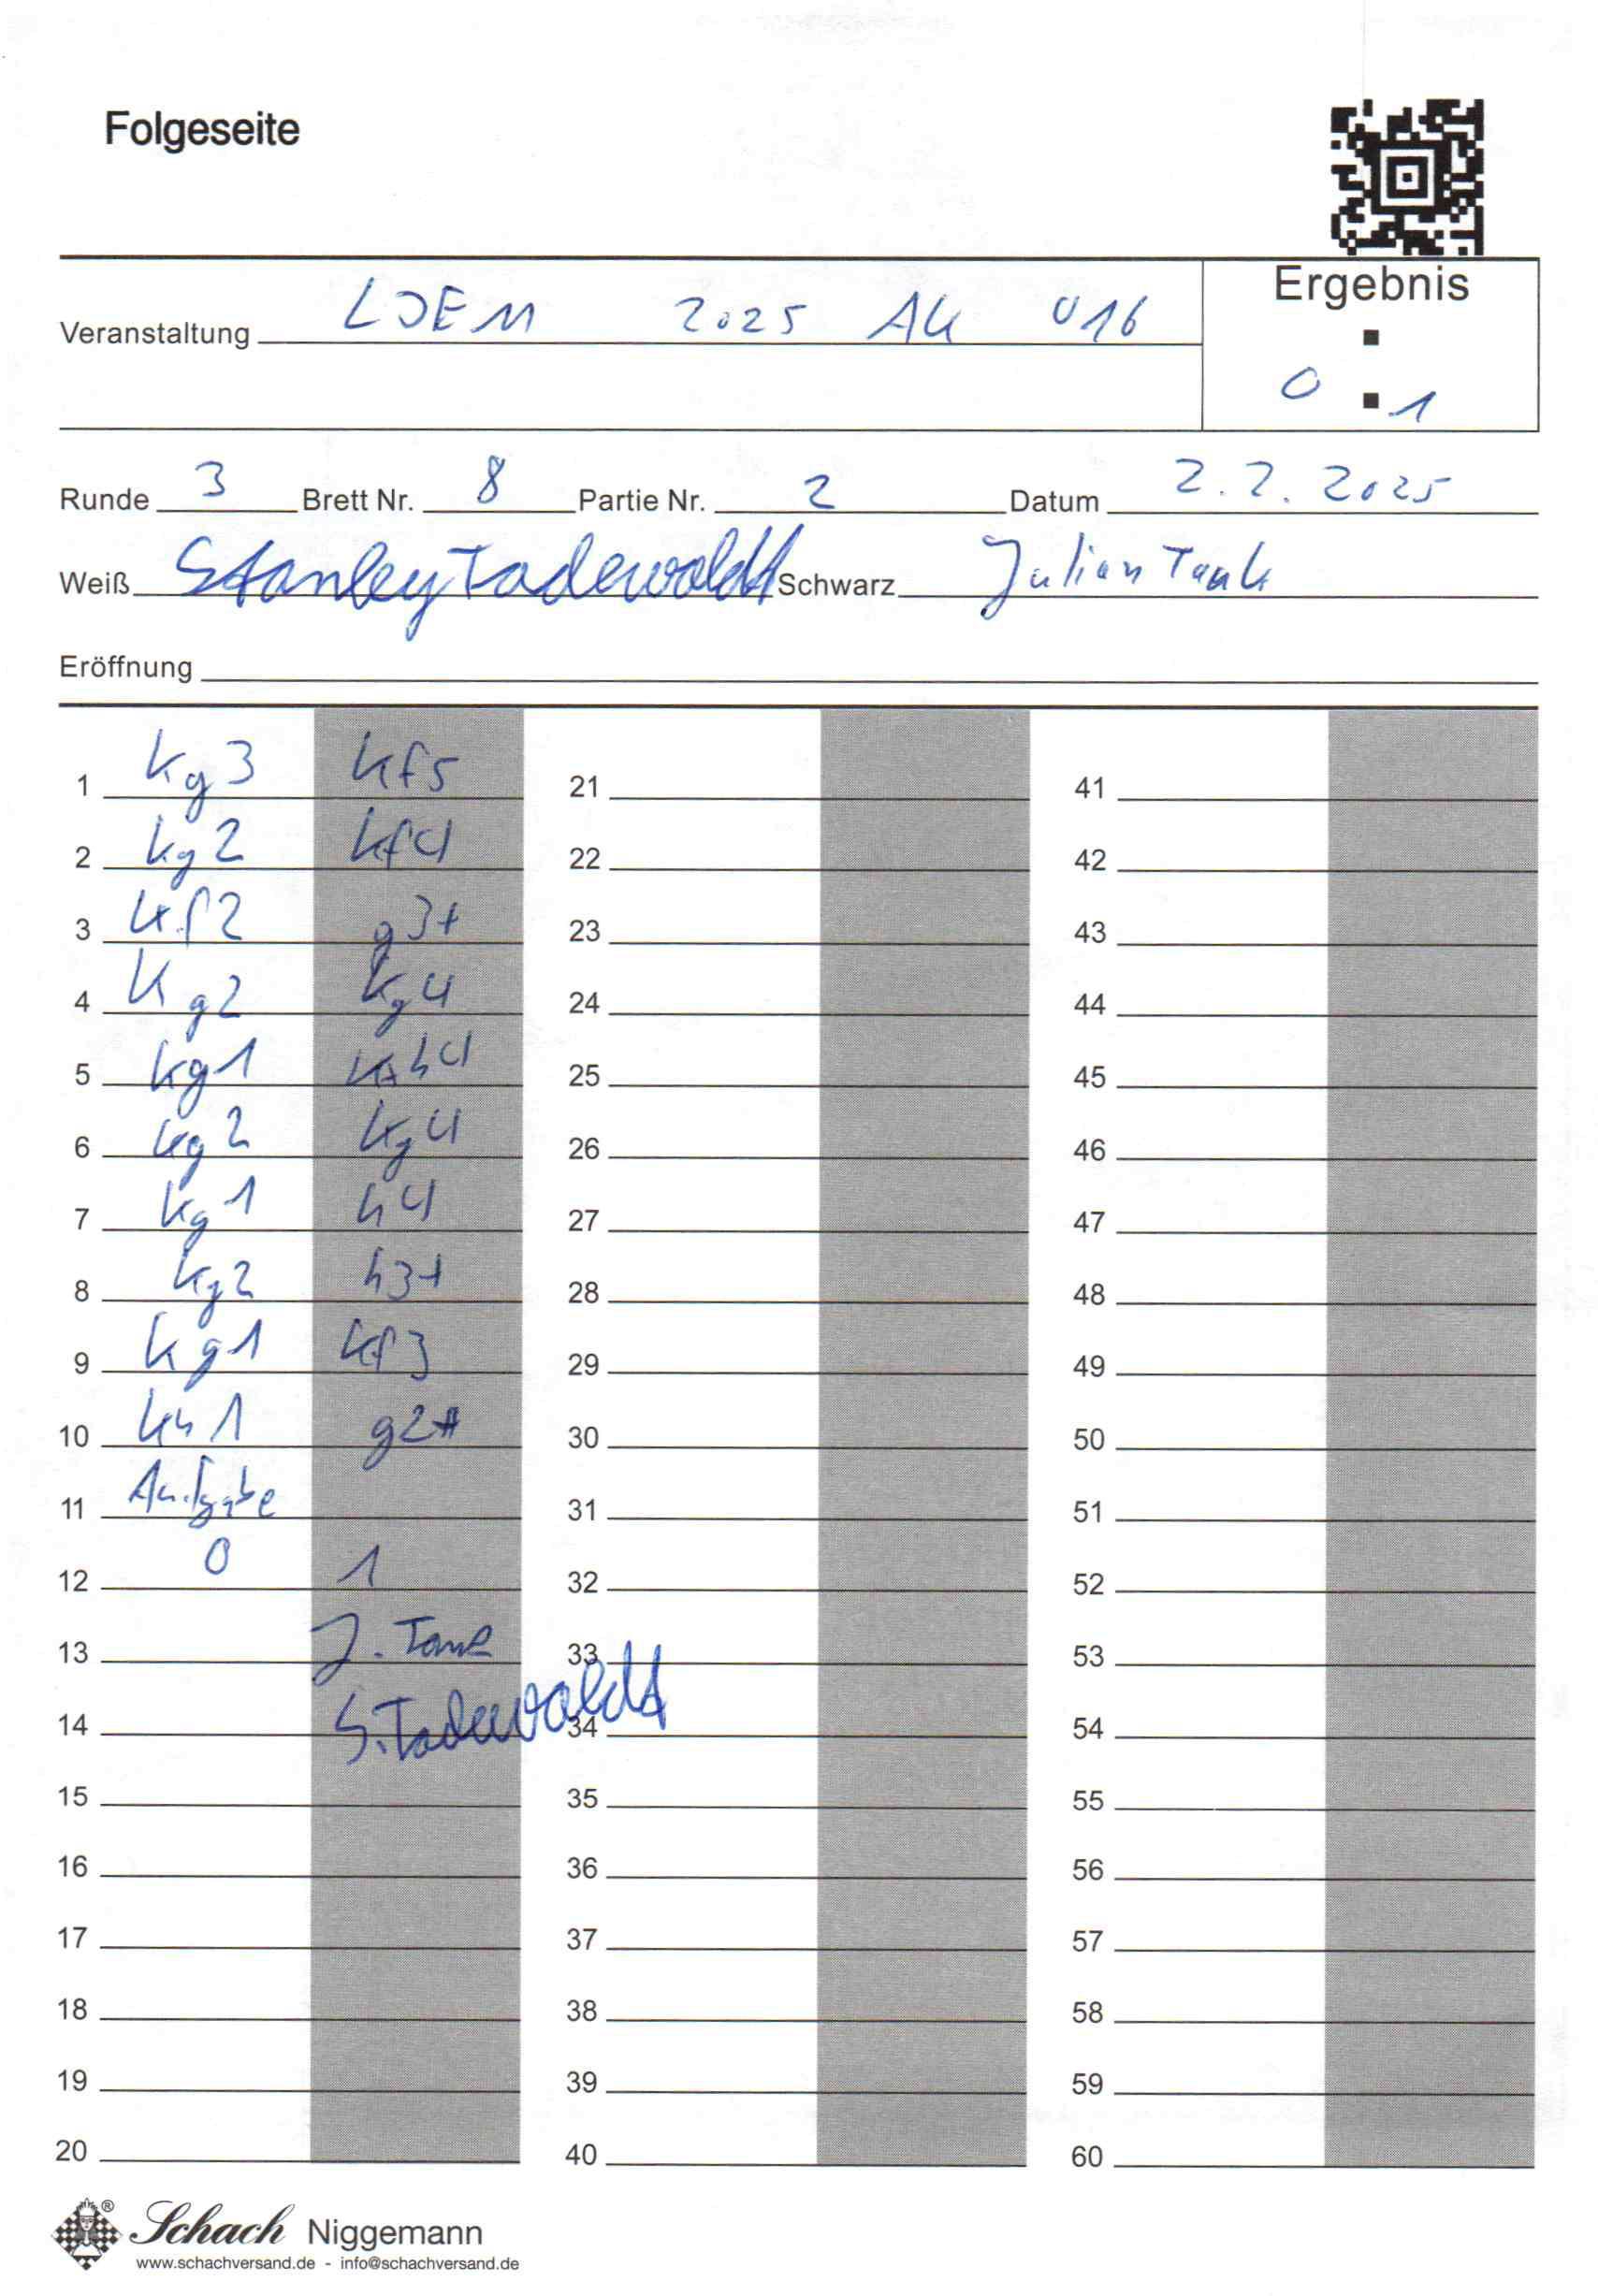 Folgeseite
Ergebnis
Veranstaltung LJEM 2025 AK U16
0 : 1
Runde 3 Brett Nr. 8 Partie Nr. 2 Datum 2.2.2025
Weiß Stanley Tadewaldt Schwarz Julian Tank
Eröffnung
1 Kg3 Kf5 21 41
2 Kg2 Kf4 22 42
3 Kf2 g3+ 23 43
4 Kg2 Kg4 24 44
5 Kg1 Kxh4 25 45
6 Kg2 Kg4 26 46
7 Kg1 h4 27 47
8 Kg2 h3+ 28 48
9 Kg1 Kf3 29 49
10 Kh1 g2# 30 50
11 Aufgabe 31 51
12 0 1 32 52
13 J. Tank 33 53
14 S. Tadewaldt 34 54
15 35 55
16 36 56
17 37 57
18 38 58
19 39 59
20 40 60
® Schach Niggemann
www.schachversand.de - info@schachversand.de